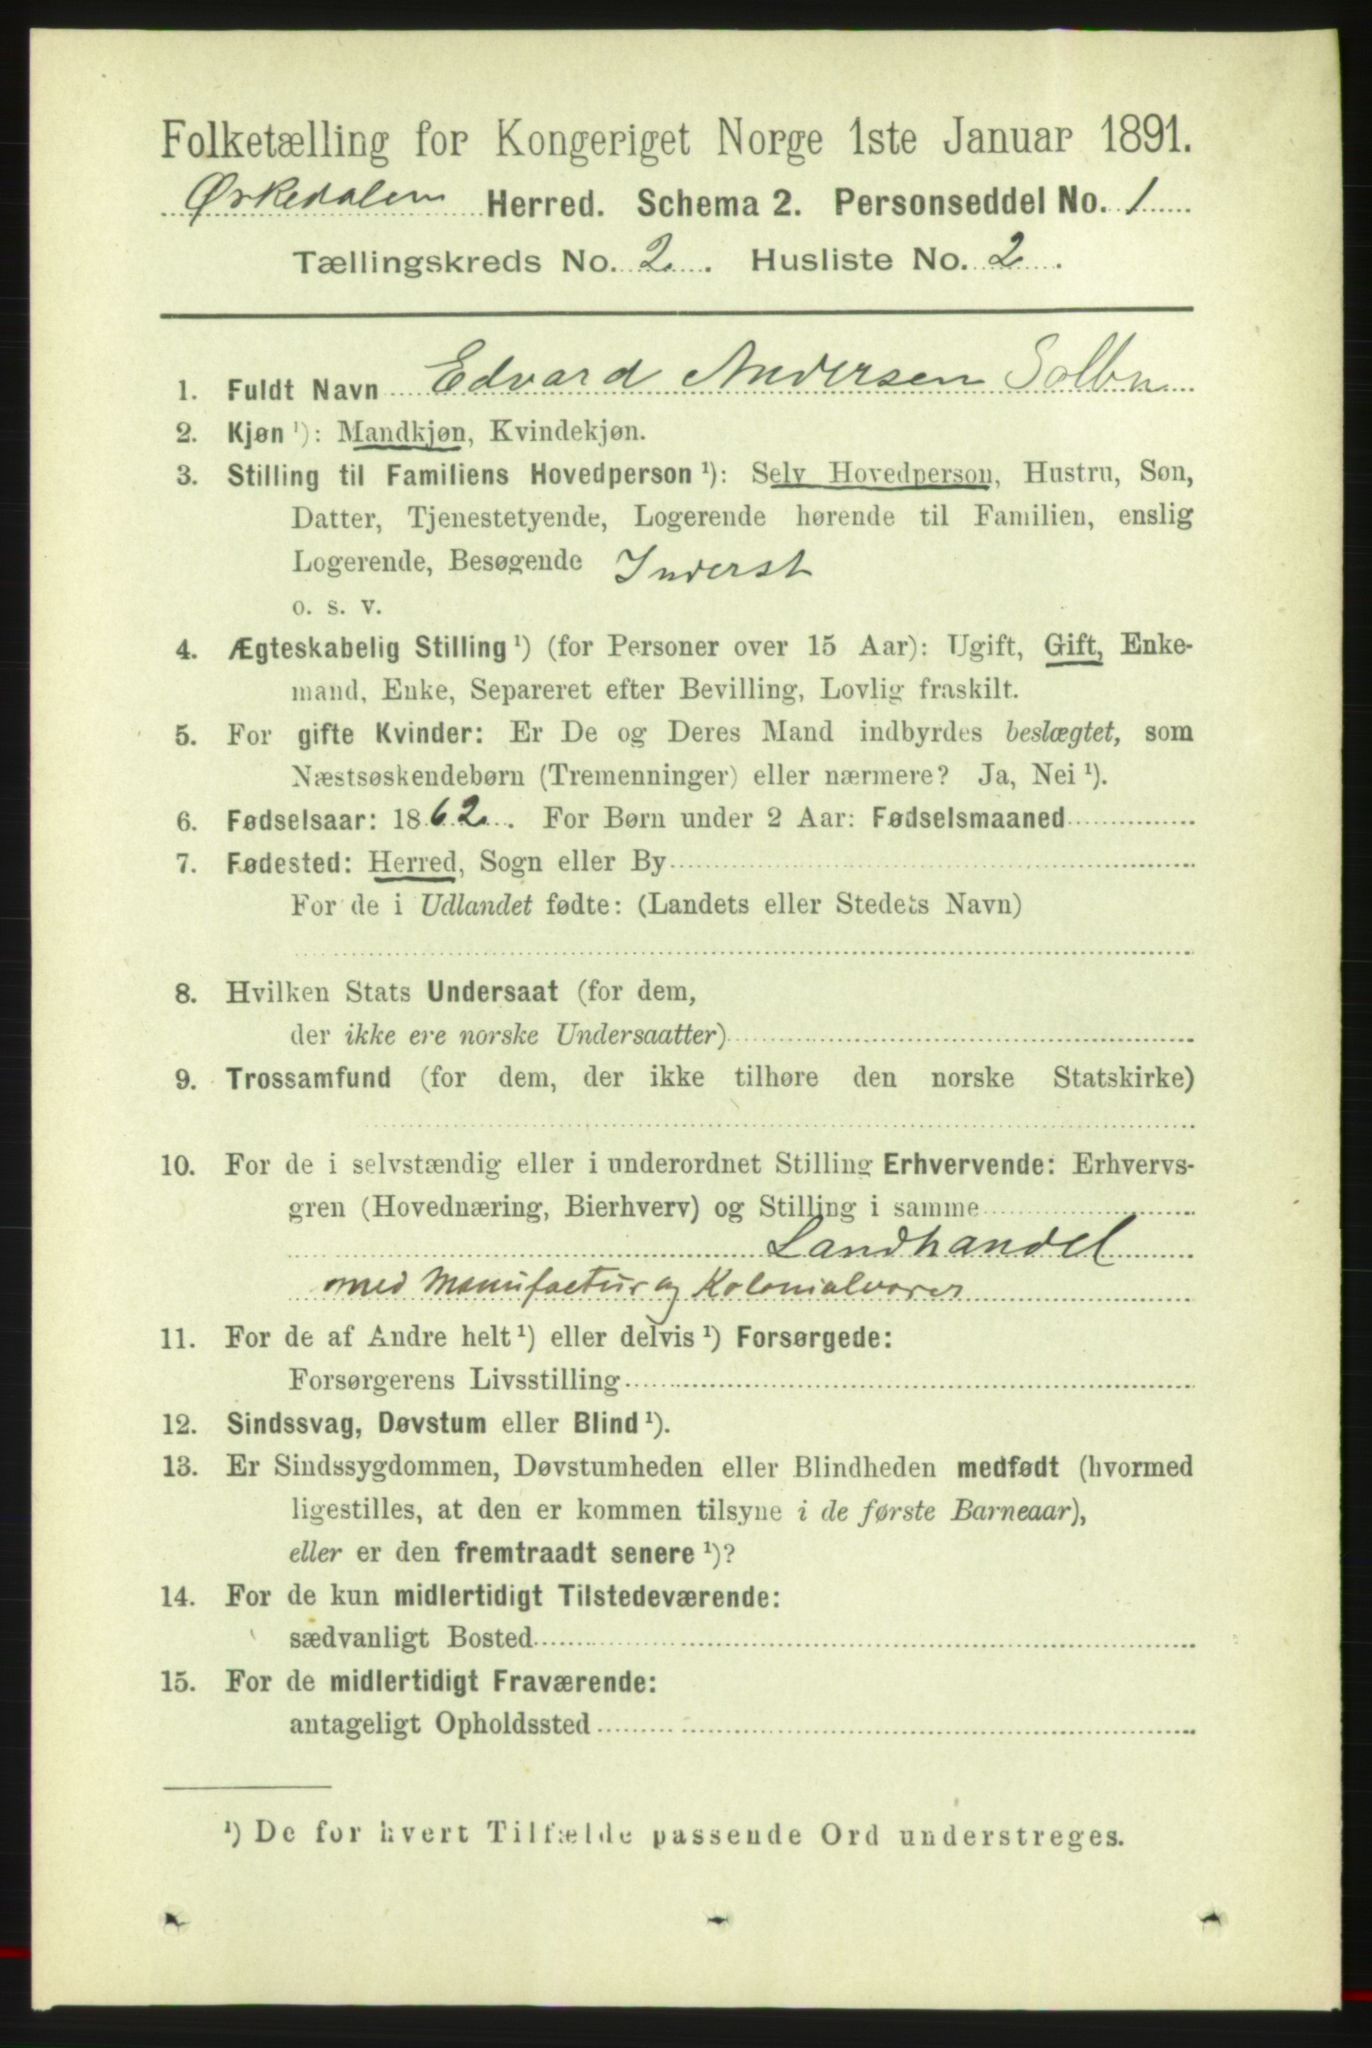 Folketælling for Kongeriget Norge 1ste Januar 1891.
Ørkedalen Herred. Schema 2. Personseddel No. 1
Tællingskreds No. 2. Husliste No. 2.
1. Fuldt Navn Edvard Andersen Solbu
2. Kjøn ¹): Mandkjøn, Kvindekjøn.
3. Stilling til Familiens Hovedperson ¹): Selv Hovedperson, Hustru, Søn,
Datter, Tjenestetyende, Logerende hørende til Familien, enslig
Logerende, Besøgende Inderst
o. s. v.
4. Ægteskabelig Stilling ¹) (for Personer over 15 Aar): Ugift, Gift, Enke-
mand, Enke, Separeret efter Bevilling, Lovlig fraskilt.
5. For gifte Kvinder: Er De og Deres Mand indbyrdes beslægtet, som
Næstsøskendebørn (Tremenninger) eller nærmere? Ja, Nei ¹).
6. Fødselsaar: 1862. For Børn under 2 Aar: Fødselsmaaned
7. Fødested: Herred, Sogn eller By
For de i Udlandet fødte: (Landets eller Stedets Navn)
8. Hvilken Stats Undersaat (for dem,
der ikke ere norske Undersaatter)
9. Trossamfund (for dem, der ikke tilhøre den norske Statskirke)
10. For de i selvstændig eller i underordnet Stilling Erhvervende: Erhvervs-
gren (Hovednæring, Bierhverv) og Stilling i samme
Landhandel
med Manufactur og Kolonialvarer
11. For de af Andre helt ¹) eller delvis ¹) Forsørgede:
Forsørgerens Livsstilling
12. Sindssvag, Døvstum eller Blind ¹).
13. Er Sindssygdommen, Døvstumheden eller Blindheden medfødt (hvormed
ligestilles, at den er kommen tilsyne i de første Barneaar),
eller er den fremtraadt senere ¹)?
14. For de kun midlertidigt Tilstedeværende:
sædvanligt Bosted
15. For de midlertidigt Fraværende:
antageligt Opholdssted
¹) De for hvert Tilfælde passende Ord understreges.